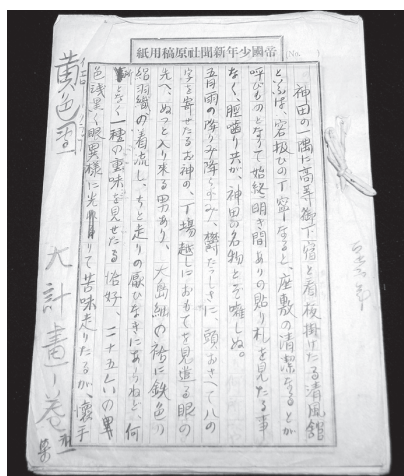 帝國少年新聞社原稿用紙
No.
神田の一隅に高等御下宿と看板掛けたる清風館
とふは、客扱ひの丁寧なると、座敷の清潔なるとが
呼びものとなつて始終明き間ありの貼り札を見たる事
なく、胆齒り共が、神田の名物とぞ囃しぬ。
五月雨の降りみ降らずみ、鬱たうしさに、頭おさへて八の
字を寄せたるお神の、丁場越しにおもてを見遣る眼の
光へ、ぬつと入り来る男あり、大島紬の袷に鉄色の
絽羽織の着流し、ちと走りの厭ひなきにあらねど、何
となく一種の重味を見せたる恰好、二十五六の男
色浅黒く眼異様に光りて苦味走りたるが、懐手
黄色
大計畫の巻